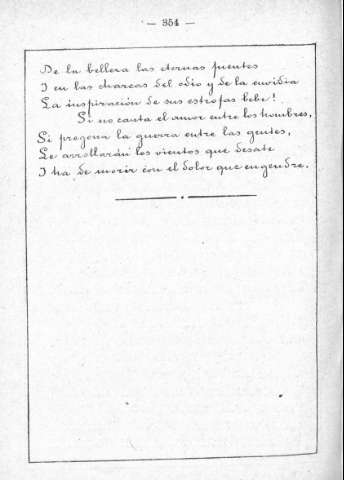 — 354 —
De la belleza las eternas fuentes
I en las charcas del odio y de la envidia
La inspiración de sus estrofas bebe!
Si no canta el amor entre los hombres,
Si pregona la guerra entre las gentes,
Le arrollarán los vientos que desate
I ha de morir con el dolor que engendre.